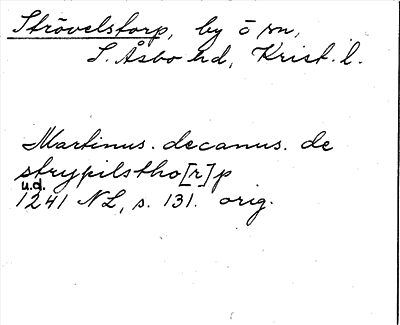 Strövelstorp, by ō sn,
S. Åsbo hd, Krist. l.
Martinus. decanus. de
strypilstho[r]p
u.d.
1241 NL, s. 131. orig.